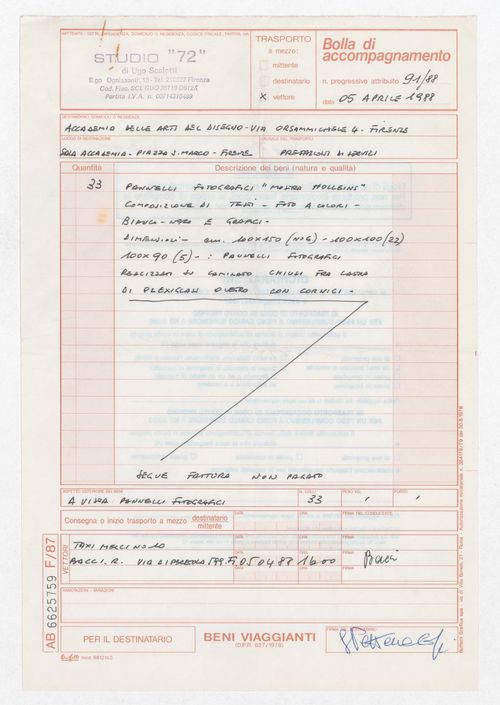 MITTENTE: DITTA, DIPENDENZA, DOMICILIO O RESIDENZA, CODICE FISCALE, PARTITA IVA
STUDIO "72"
di Ugo Scaletti
B.go Ognissanti, 13 - Tel. 210377 Firenze
Partita I.V.A. n.
TRASPORTO
a mezzo:
mittente
destinatario
X vettore
Bolla di
accompagnamento
n. progressivo attribuito 91/88
data 05 APRILE 1988
DESTINATARIO, DOMICILIO O RESIDENZA
ACCADEMIA DELLE ARTI DEL DISEGNO - VIA ORSANMICHELE 4. FIRENZE
LUOGO DI DESTINAZIONE
CAUSALE DEL TRASPORTO
SALA ACCADEMIA - PIAZZA S. MARCO - FIRENZE PRESTAZIONI DI SERVIZI
Quantità
Descrizione dei beni (natura e qualità)
33 PANNELLI FOTOGRAFICI "MOSTRA HOLLEINS"
COMPOSIZIONE DI TESTI - FOTO A COLORI -
BIANCO-NERO E GRAFICI -
DIMENSIONI - cm. 100X150 (N°6) - 100X100 (22)
100X90 (5) - : PANNELLI FOTOGRAFICI
REALIZZATI SU LAMINATO CHIUSI FRA LASTRA
DI PLEXIGLAS O VETRO CON CORNICI -
SEGUE FATTURA NON PAGATO
ASPETTO ESTERIORE DEI BENI
N. COLLI
PESO KG.
PORTO
A VISTA PANNELLI FOTOGRAFICI 33
Consegna o inizio trasporto a mezzo destinatario
mittente
DATA
ORA
FIRMA DEL CONDUCENTE
VETTORI
TAXI MERCI N° 10
BACCI. R. 050488 1600 Bacci
DATA
ORA
FIRMA
ANNOTAZIONI - VARIAZIONI
AB 6625759 F/87
PER IL DESTINATARIO
BENI VIAGGIANTI
(D.P.R. 627/1978)